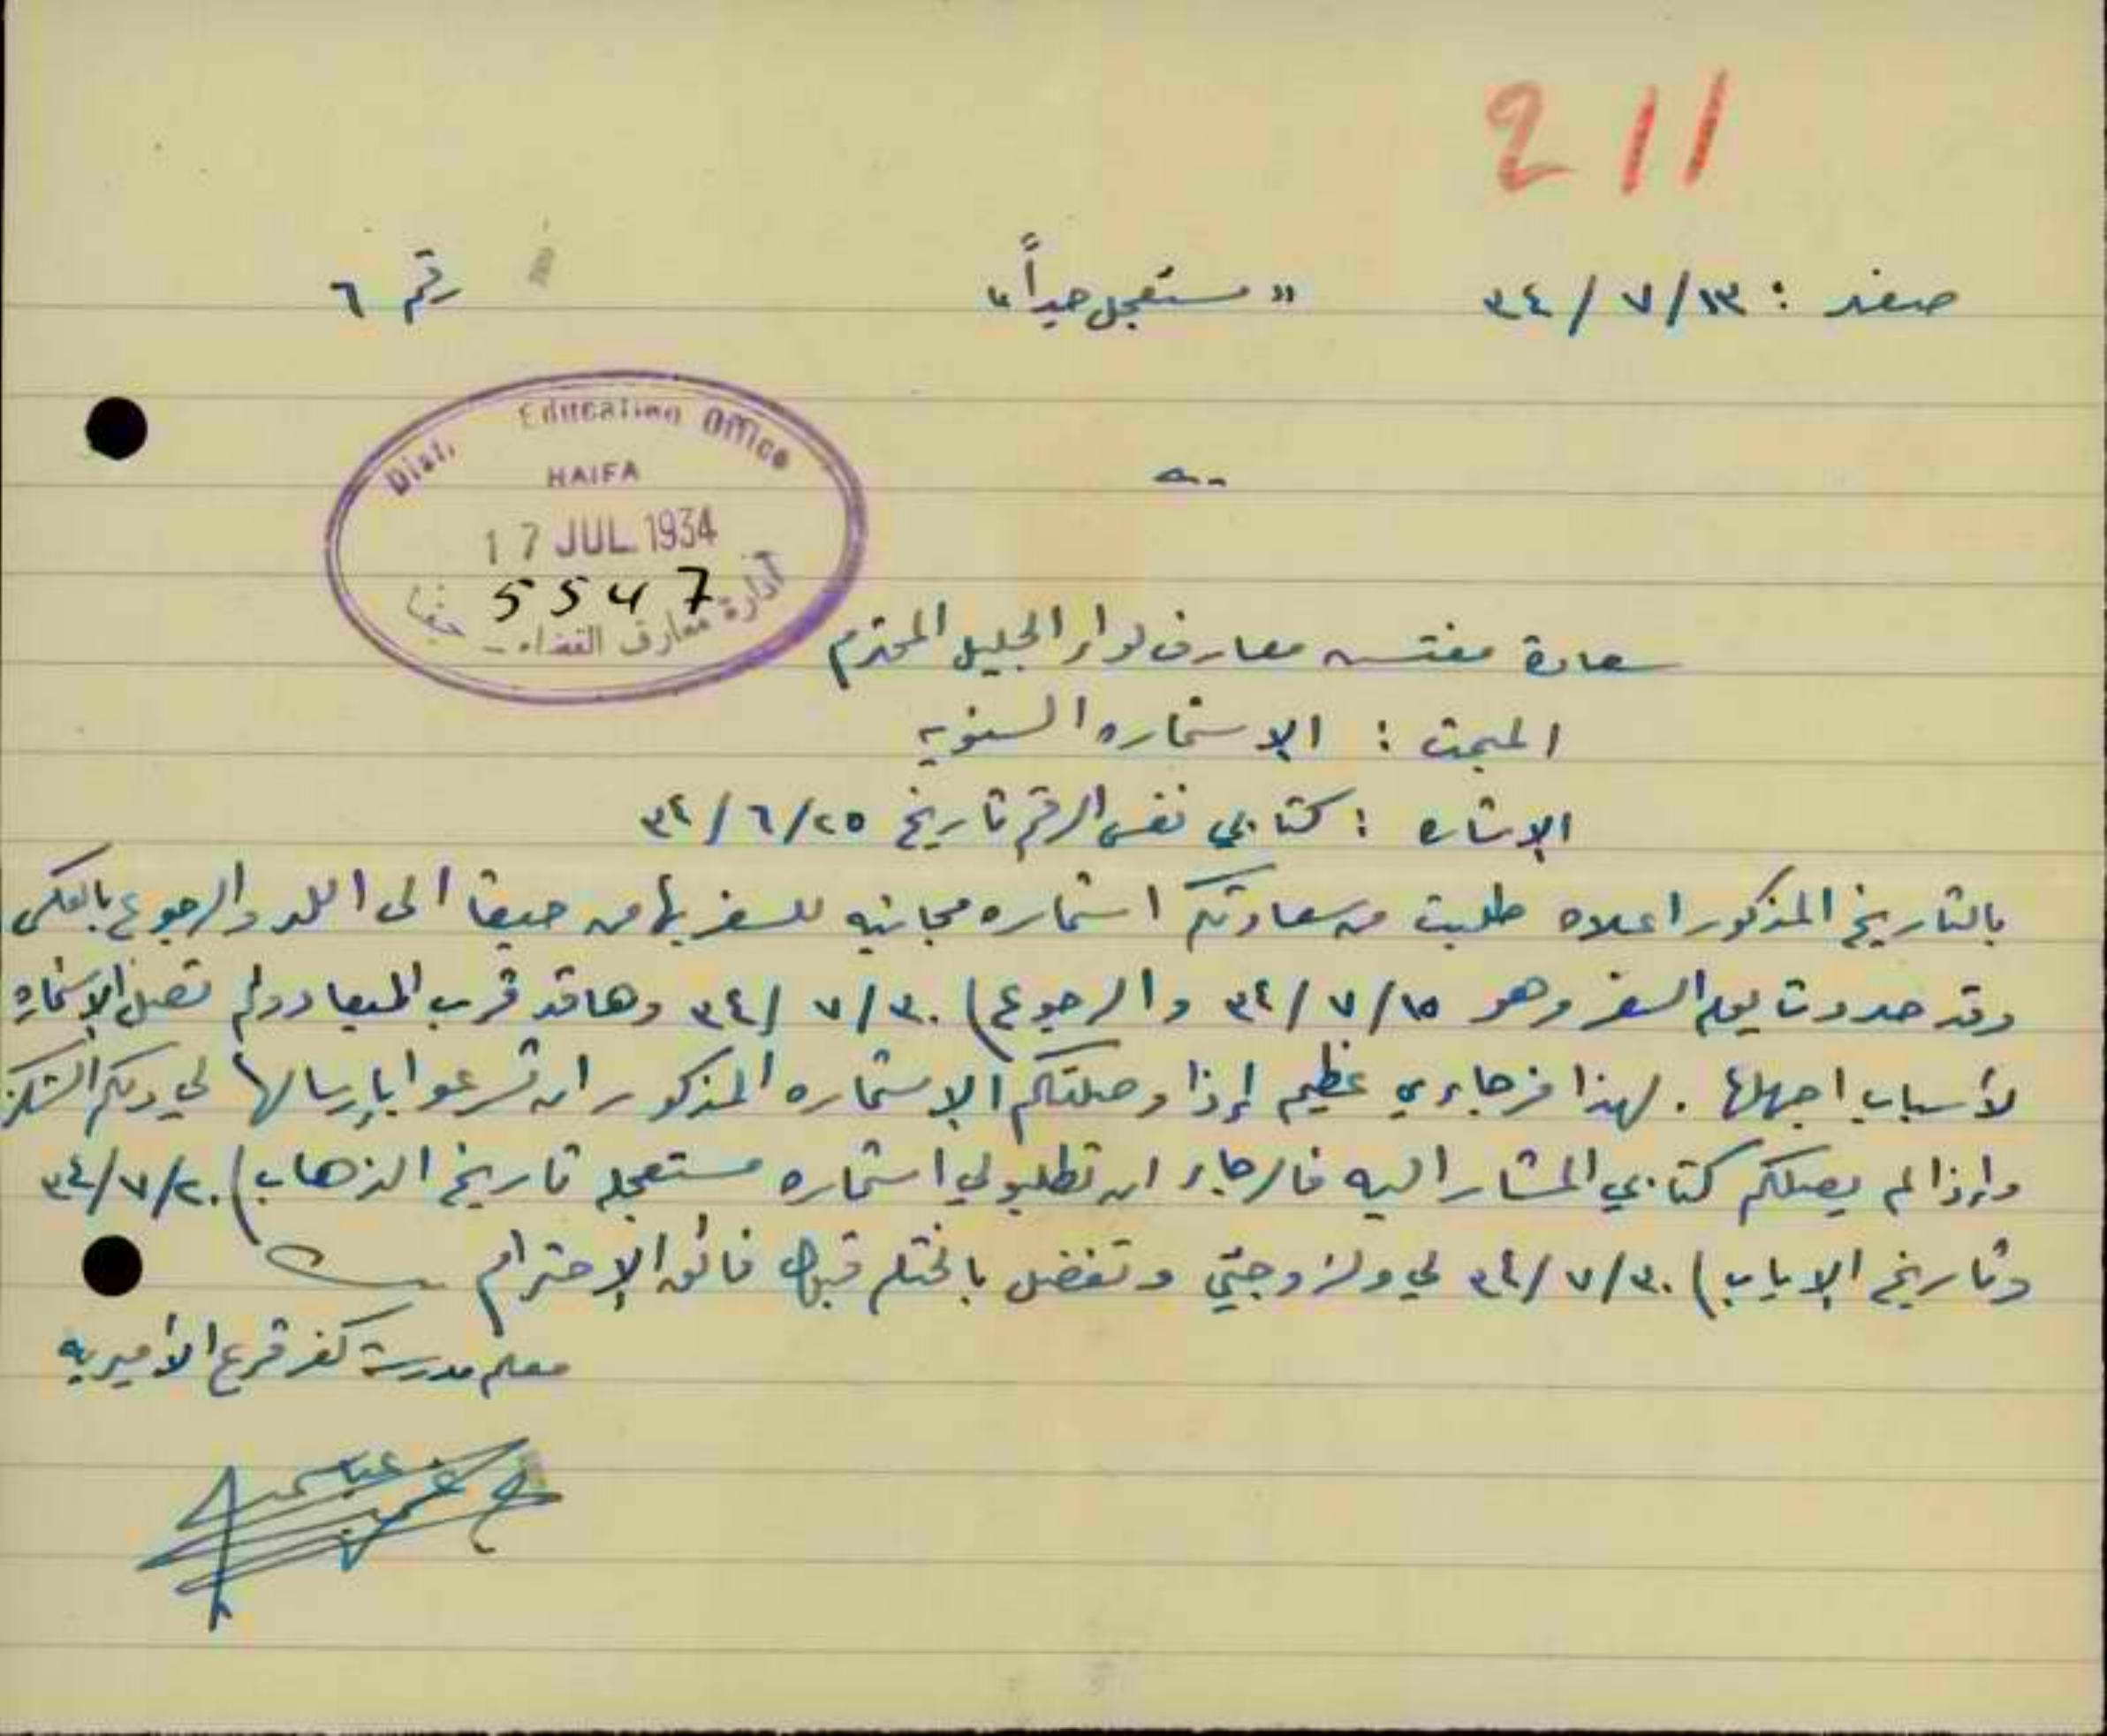 211
صفد : ١٣/٧/٣٤ "مستعجل جداً" رقم ٦
Dist. Education Office
HAIFA
17 JUL 1934
5547
ادارة معارف القضاء - حيفا
سعادة مفتش معارف لواء الجليل المحترم
المبحث : الإستماره السنويه
الإشاره : كتابي نفس الرقم تاريخ ٢٥/٦/٣٤
بالتاريخ المذكور اعلاه طلبت من سعادتكم استماره مجانيه للسفر بها من حيفا الى اللد والرجوع بالعكس
وقد حددت يوم السفر وهو ١٥/٧/٣٤ والرجوع) ٣٠/٧/٣٤ وها قد قرب الميعاد ولم تصل الإستماره
لأسباب اجهلها . لهذا فرجاءي عظيم إذا وصلتكم الإستماره المذكور ان تسرعوا بإرسالها لي ولكم الشكر
وإذا لم يصلكم كتابي المشار اليه فالرجاء ان تطلبو لي استماره مستعجله تاريخ الذهاب) ٢٠/٧/٣٤
وتاريخ الإياب) ٣٠/٧/٣٤ لي ولزوجتي وتفضل بالختام قبول فائق الإحترام
معلم مدرسة كفر قرع الأميريه